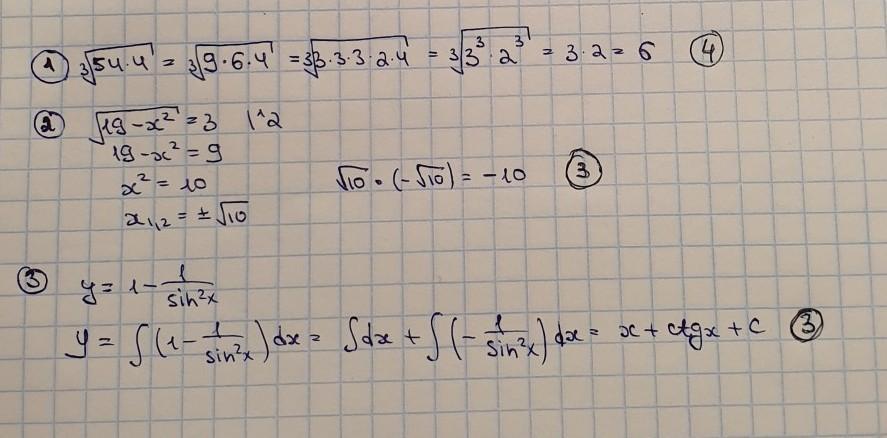 ① ∛(54·4) = ∛(9·6·4) = ∛(3·3·3·2·4) = ∛(3³·2³) = 3·2 = 6 ④
② √(19-x²) = 3 |^2
19-x² = 9
x² = 10 √10 · (-√10) = -10 ③
x₁,₂ = ±√10
③ y = 1 - 1/sin²x
y = ∫(1 - 1/sin²x)dx = ∫dx + ∫(- 1/sin²x)dx = x + ctgx + C ③